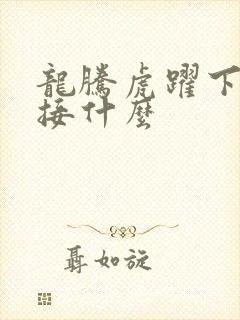 龍騰虎躍下
接什麼
聶如旋